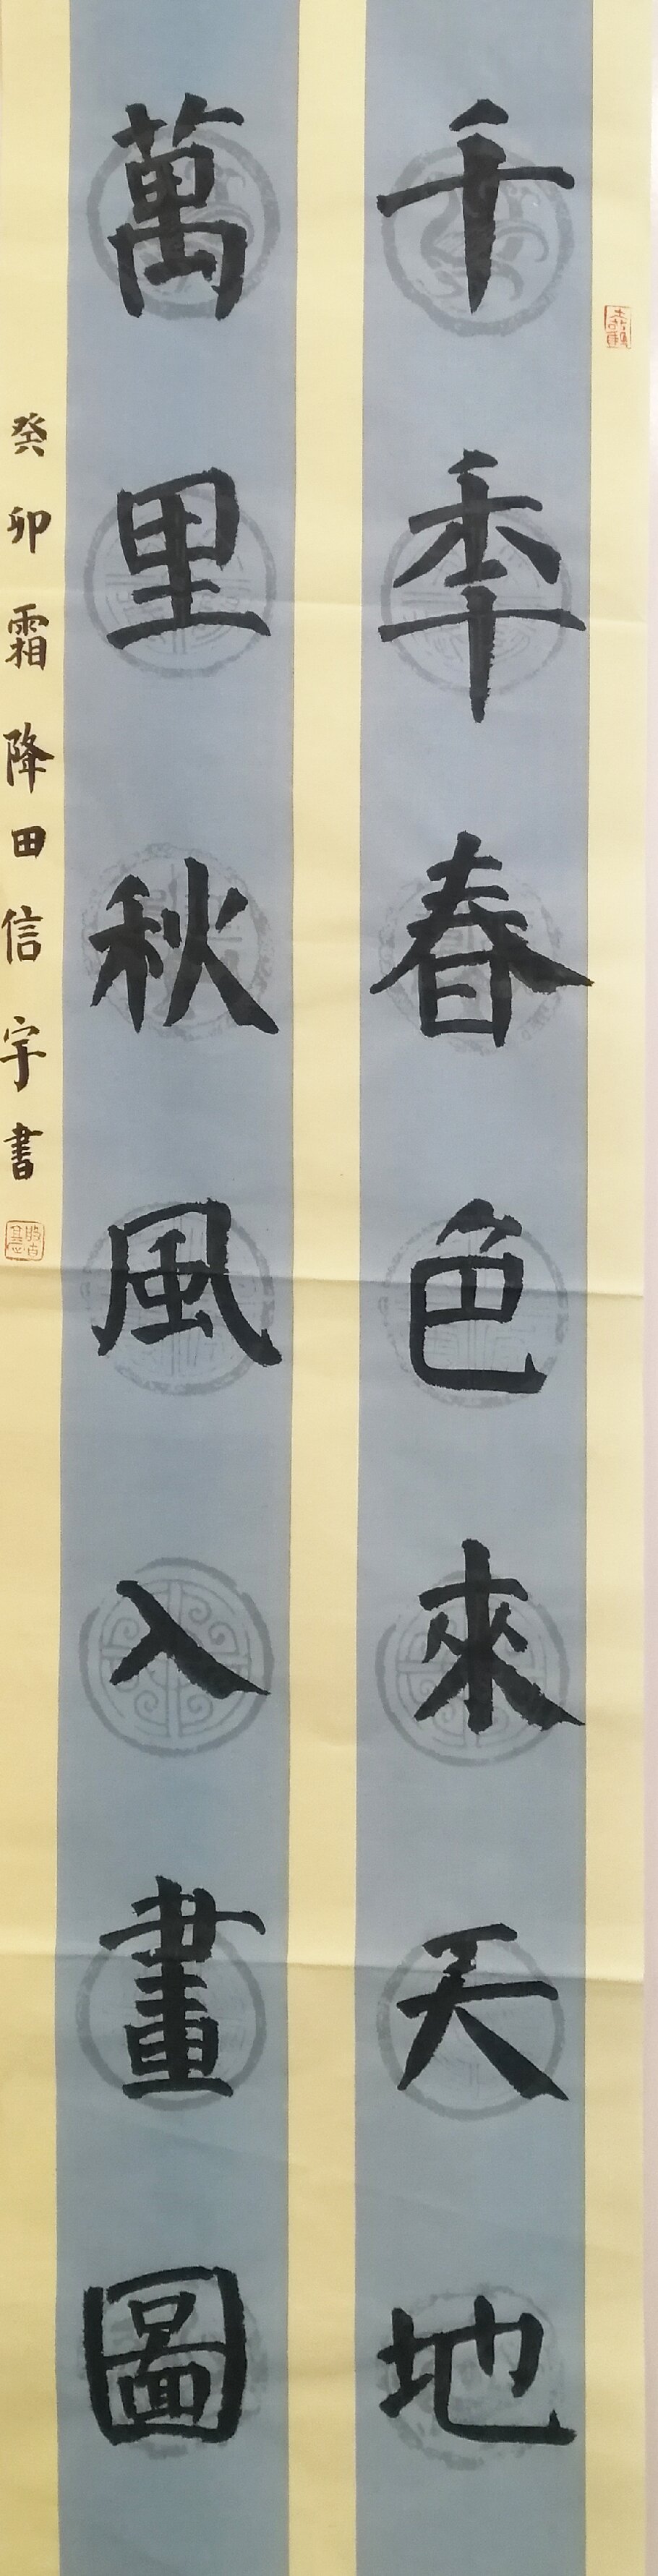 千秊春色來天地
萬里秋風入畫圖
癸卯霜降田信宇書